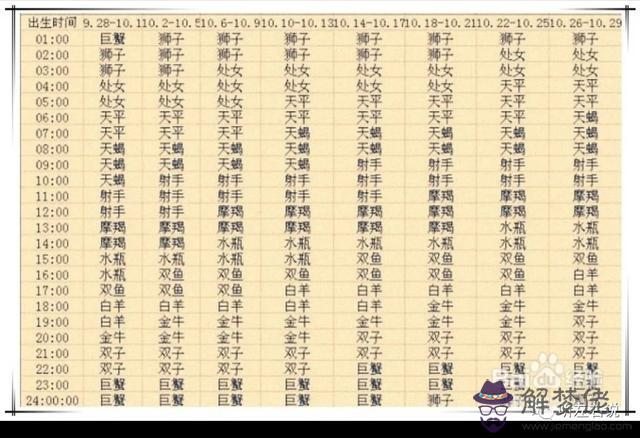 出生时间 9.28-10.1 10.2-10.5 10.6-10.9 10.10-10.13 10.14-10.17 10.18-10.21 10.22-10.25 10.26-10.29
01:00 巨蟹 狮子 狮子 狮子 狮子 狮子 狮子 狮子
02:00 狮子 狮子 狮子 狮子 狮子 狮子 处女 处女
03:00 狮子 狮子 处女 处女 处女 处女 处女 处女
04:00 处女 处女 处女 处女 处女 处女 天平 天平
05:00 处女 处女 处女 天平 天平 天平 天平 天平
06:00 天平 天平 天平 天平 天平 天平 天平 天蝎
07:00 天平 天平 天平 天蝎 天蝎 天蝎 天蝎 天蝎
08:00 天蝎 天蝎 天蝎 天蝎 天蝎 天蝎 天蝎 天蝎
09:00 天蝎 天蝎 天蝎 天蝎 射手 射手 射手 射手
10:00 天蝎 射手 射手 射手 射手 射手 射手 射手
11:00 射手 射手 射手 射手 射手 摩羯 摩羯 摩羯
12:00 射手 射手 摩羯 摩羯 摩羯 摩羯 摩羯 摩羯
13:00 摩羯 摩羯 摩羯 摩羯 摩羯 摩羯 水瓶 水瓶
14:00 摩羯 摩羯 水瓶 水瓶 水瓶 水瓶 水瓶 水瓶
15:00 水瓶 水瓶 水瓶 水瓶 双鱼 双鱼 双鱼 双鱼
16:00 水瓶 双鱼 双鱼 双鱼 双鱼 双鱼 双鱼 白羊
17:00 双鱼 双鱼 双鱼 白羊 白羊 白羊 白羊 白羊
18:00 白羊 白羊 白羊 白羊 白羊 金牛 金牛 金牛
19:00 白羊 金牛 金牛 金牛 金牛 金牛 金牛 双子
20:00 金牛 金牛 金牛 金牛 双子 双子 双子 双子
21:00 双子 双子 双子 双子 双子 双子 双子 双子
22:00 双子 双子 双子 双子 巨蟹 巨蟹 巨蟹 巨蟹
23:00 巨蟹 巨蟹 巨蟹 巨蟹 巨蟹 巨蟹
24:00:00 巨蟹 巨蟹 巨蟹 巨蟹 巨蟹 狮子
解梦佬
www.jiemenglao.com